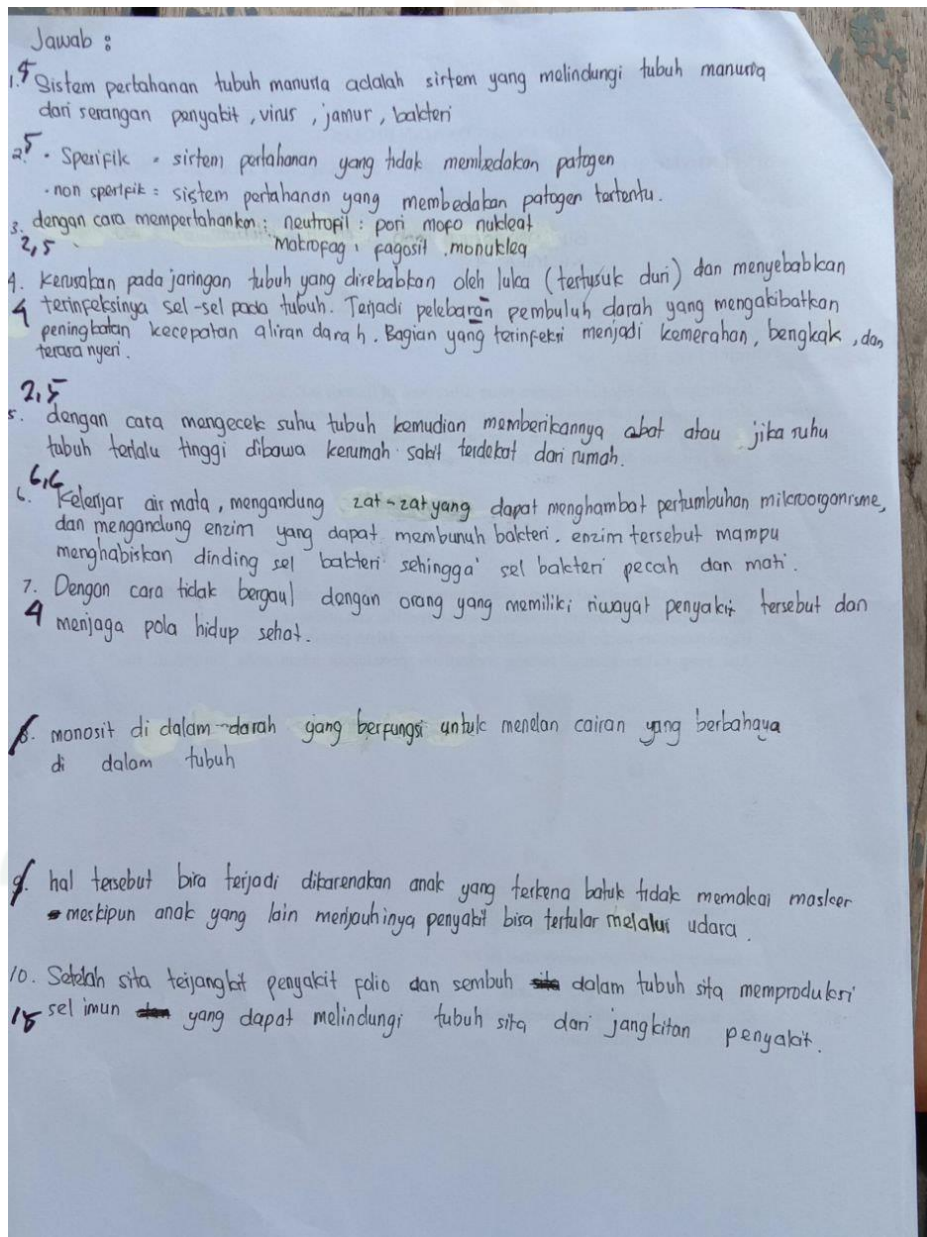 Jawab :
1. 5 Sistem pertahanan tubuh manusia adalah sistem yang melindungi tubuh manusia
dari serangan penyakit, virus, jamur, bakteri
2. 5 • Spesifik = sistem pertahanan yang tidak membedakan patogen
• non spesifik = sistem pertahanan yang membedakan patogen tertentu.
3. dengan cara mempertahankan : neutrofil : pori mofo nukleat
2,5 Makrofag : fagosit monuklea
4. Kerusakan pada jaringan tubuh yang disebabkan oleh luka (tertusuk duri) dan menyebabkan
4 terinfeksinya sel-sel pada tubuh. Terjadi pelebaran pembuluh darah yang mengakibatkan
peningkatan kecepatan aliran darah. Bagian yang terinfeksi menjadi kemerahan, bengkak, dan
terasa nyeri.
2,5
5. dengan cara mengecek suhu tubuh kemudian memberikannya obat atau jika suhu
tubuh terlalu tinggi dibawa kerumah sakit terdekat dari rumah.
6,6
6. Kelenjar air mata, mengandung zat-zat yang dapat menghambat pertumbuhan mikroorganisme,
dan mengandung enzim yang dapat membunuh bakteri. enzim tersebut mampu
menghabiskan dinding sel bakteri sehingga sel bakteri pecah dan mati.
7. Dengan cara tidak bergaul dengan orang yang memiliki riwayat penyakit tersebut dan
4 menjaga pola hidup sehat.
8. monosit di dalam darah yang berfungsi untuk menelan cairan yang berbahaya
di dalam tubuh
9. hal tersebut bisa terjadi dikarenakan anak yang terkena batuk tidak memakai masker
meskipun anak yang lain menjauhinya penyakit bisa tertular melalui udara.
10. Setelah sita terjangkit penyakit folio dan sembuh dalam tubuh sita memproduksi
15 sel imun yang dapat melindungi tubuh sita dari jangkitan penyakit.